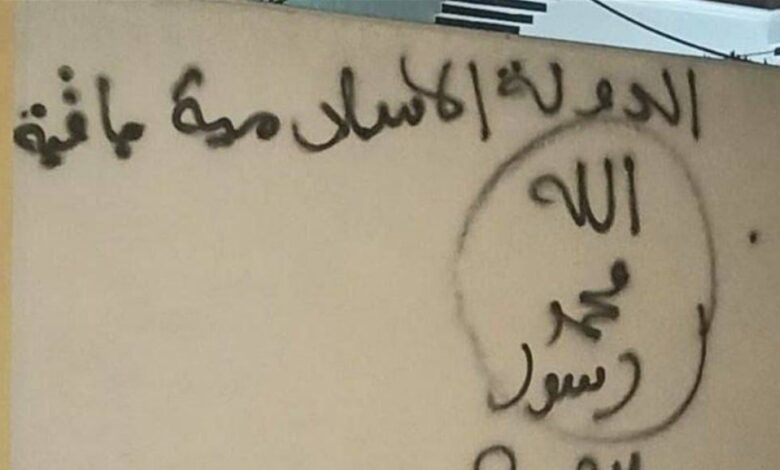 الدولة الاسلامية باقية
الله
محمد
رسول